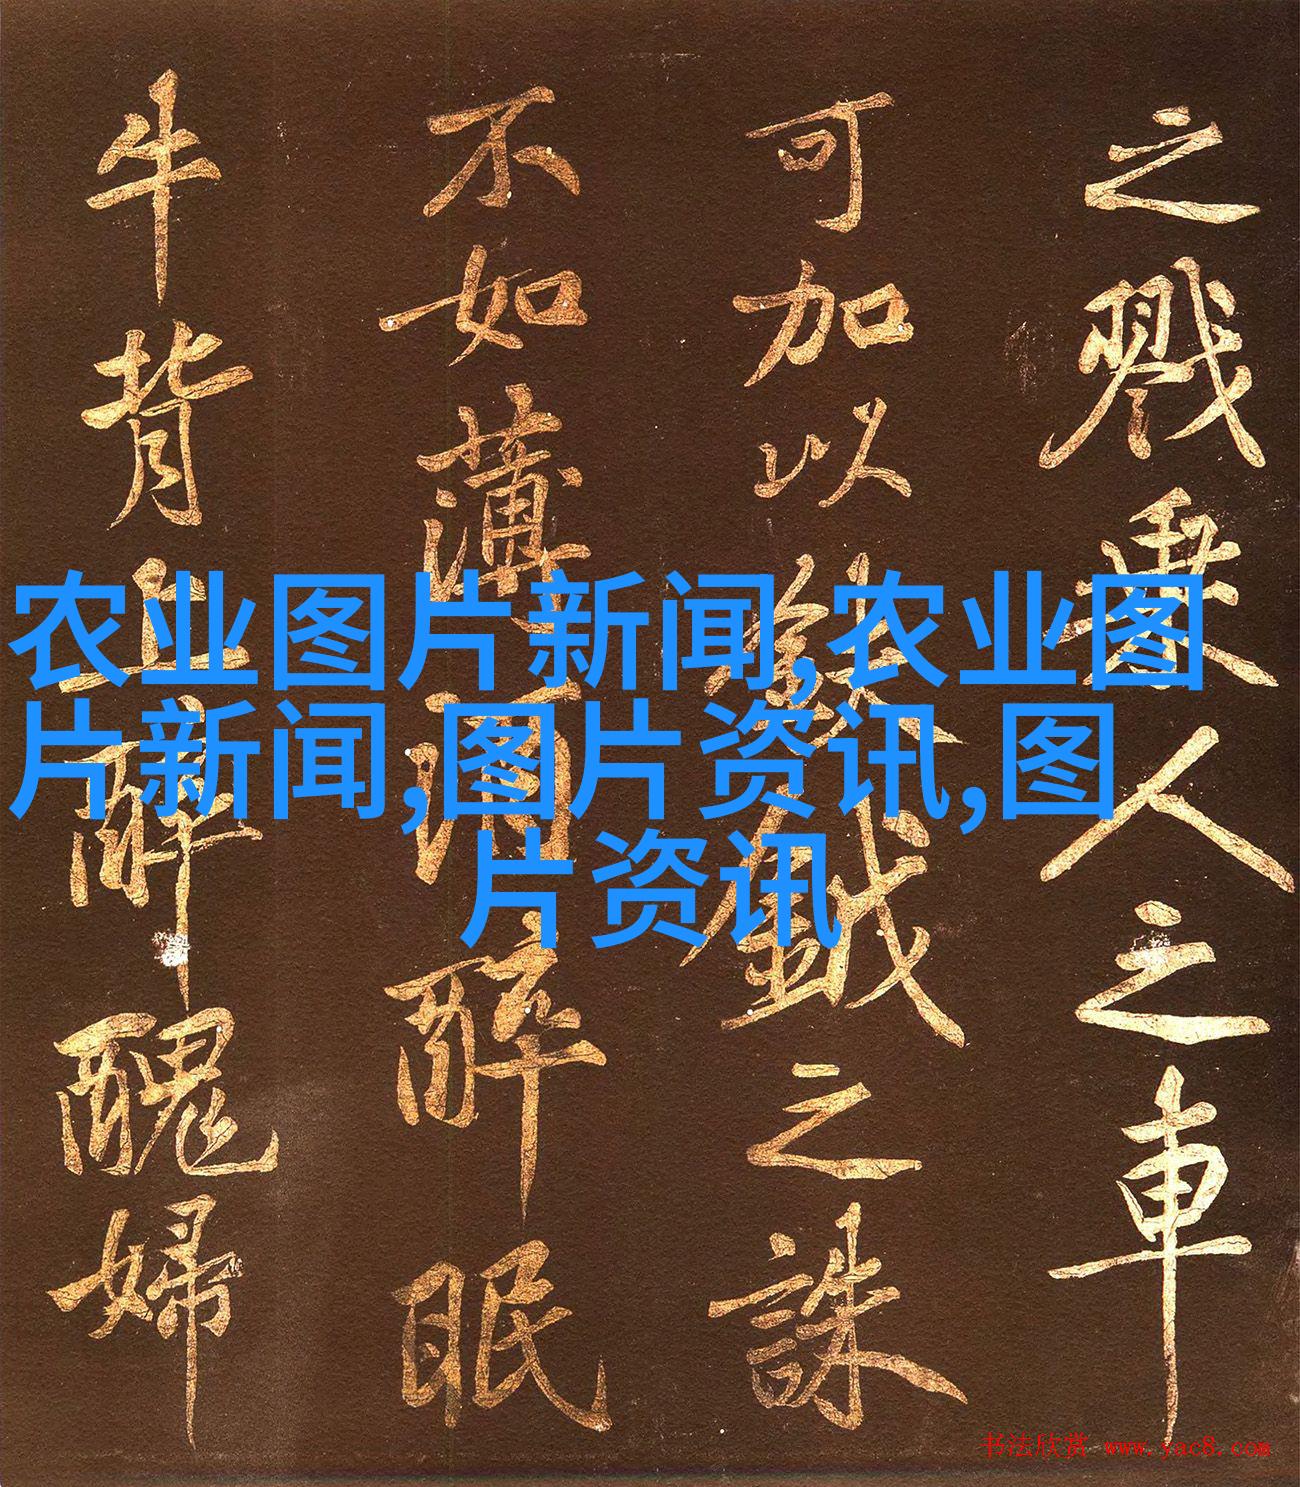 之戮乘人之車
可加以鈇鉞之誅
不如薄酒醉眠
牛背上醉醜婦
农业图片新闻,农业图
片新闻,图片资讯,图
片资讯
书法欣赏 www.yac8.com